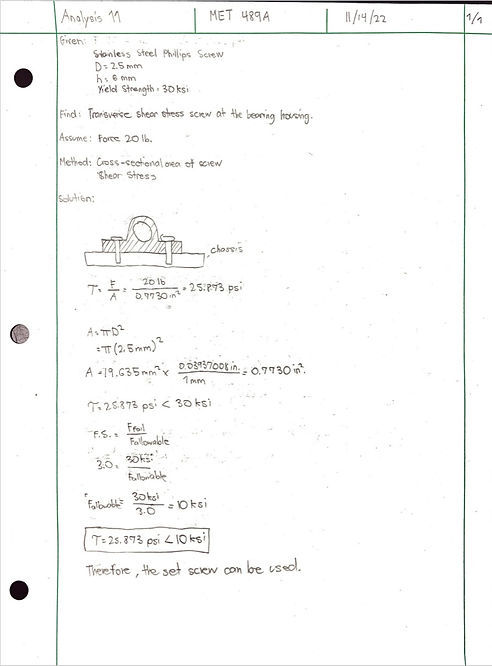 Analysis 11 MET 489A 11/14/22 1/1
Given:
Stainless Steel Phillips Screw
D = 2.5 mm
h = 8 mm
Yield Strength = 30 ksi
Find: Transverse shear stress screw at the bearing housing.
Assume: Force 20 lb.
Method: Cross-sectional area of screw
Shear Stress
Solution:
chassis
τ = F/A = 20 lb/0.7730 in² = 25.873 psi
A = πD²
= π(2.5mm)²
A = 19.635 mm² × 0.03937008 in./1 mm = 0.7730 in².
τ = 25.873 psi < 30 ksi
F.S. = Ffail/Fallowable
3.0 = 30 ksi/Fallowable
Fallowable = 30 ksi/3.0 = 10 ksi
τ = 25.873 psi < 10 ksi
Therefore, the set screw can be used.